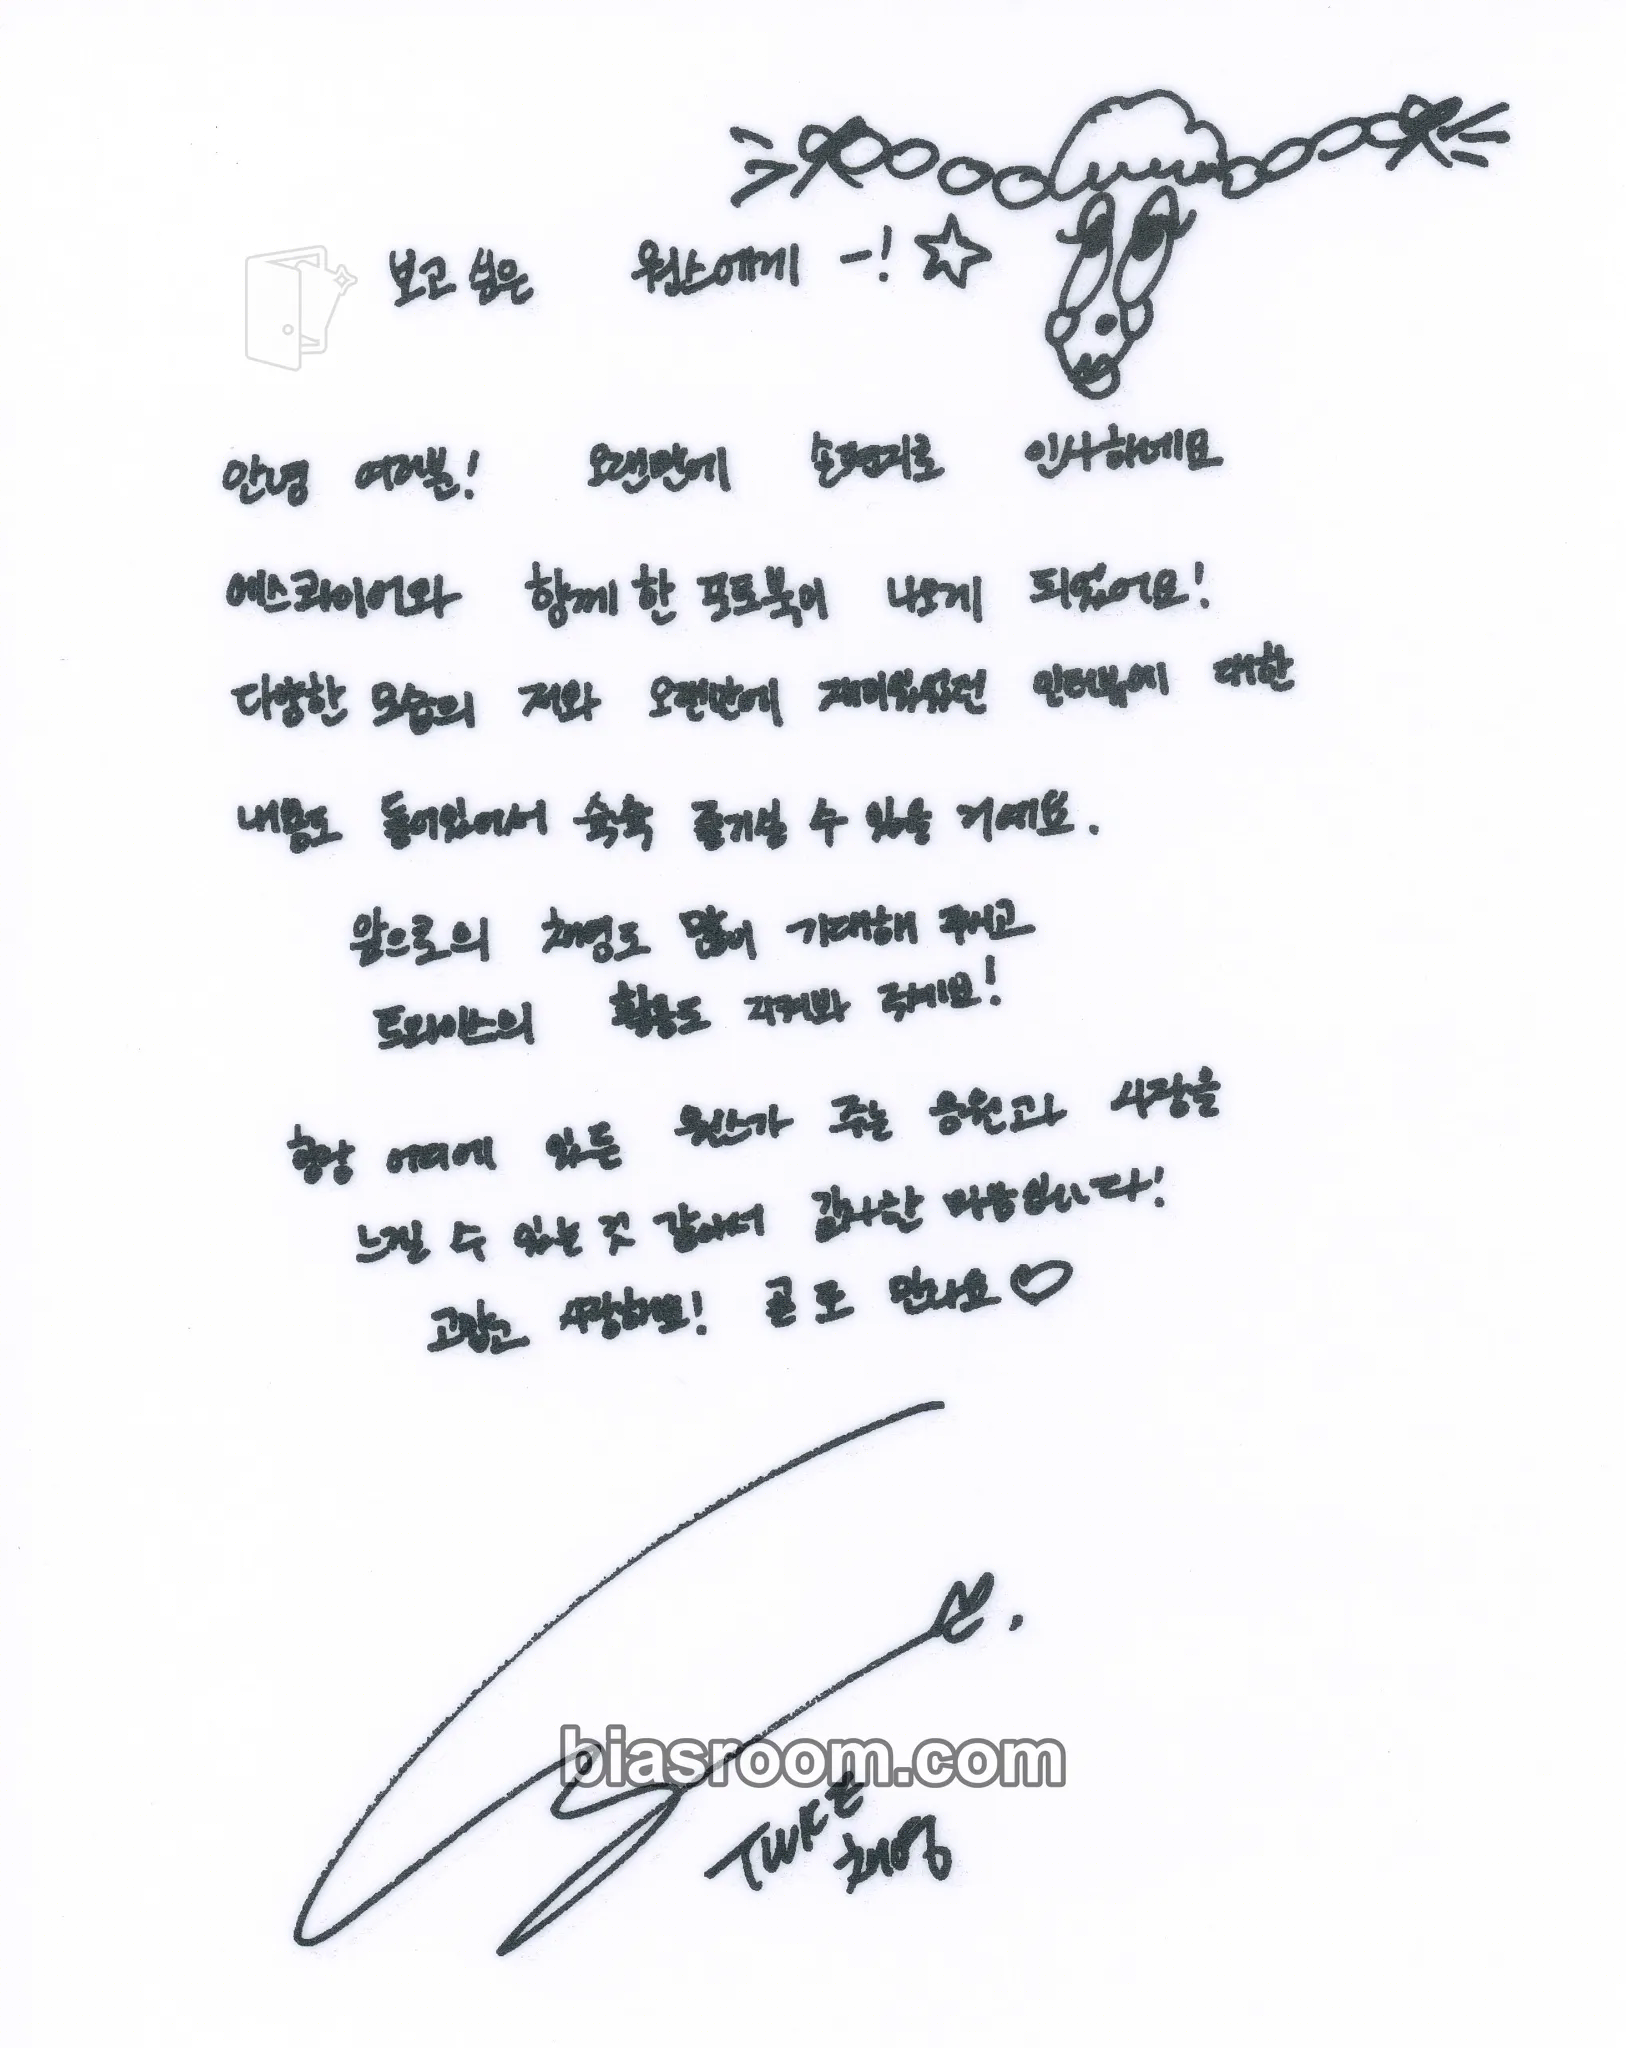 보고싶은 원스에게 -! ☆
안녕 여러분! 오랜만에 손편지로 인사하네요
에스콰이어와 함께 한 포토북이 나오게 되었어요!
다양한 모습의 저와 오랜만에 재미있었던 인터뷰에 대한
내용도 들어있어서 슉슉 즐기실 수 있을 거예요.
앞으로의 채영도 많이 기대해 주시고
트와이스의 활동도 지켜봐 주세요!
항상 어디에 있든 원스가 주는 응원과 사랑을
느낄 수 있는 것 같아서 감사한 마음입니다!
고맙고 사랑해요! 곧 또 만나요 ♡
biasroom.com
TWICE
채영